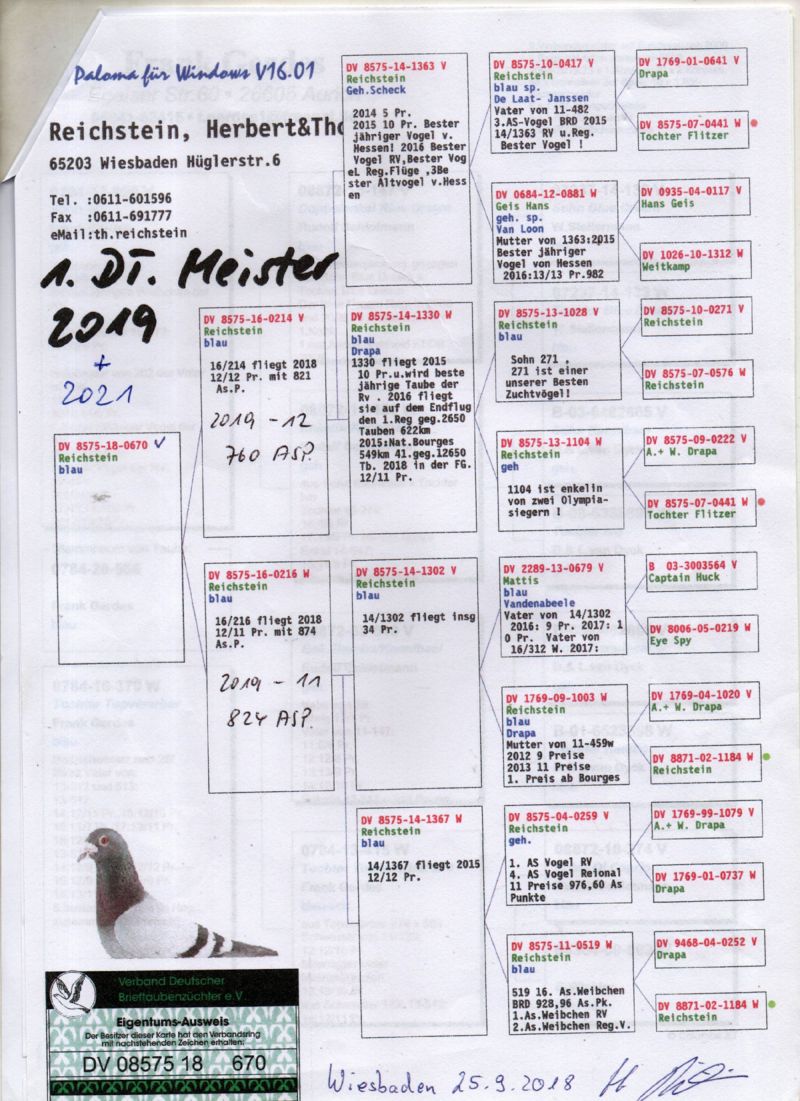 Paloma für Windows V16.01
Reichstein, Herbert&Tho
65203 Wiesbaden Hüglerstr.6
Tel. :0611-601596
Fax :0611-691777
eMail:th.reichstein
1. DT. Meister
2019
+
2021
DV 8575-18-0670 V
Reichstein
blau
DV 8575-16-0214 V
Reichstein
blau
16/214 fliegt 2018
12/12 Pr. mit 821
As.P.
2019 - 12
760 ASP.
DV 8575-16-0216 W
Reichstein
blau
16/216 fliegt 2018
12/11 Pr. mit 874
As.P.
2019 - 11
824 ASP.
DV 8575-14-1363 V
Reichstein
Geh.Scheck
2014 5 Pr.
2015 10 Pr. Bester
jähriger Vogel v.
Hessen! 2016 Bester
Vogel RV,Bester Vog
eL Reg.Flüge ,3Be
ster Altvogel v.Hess
en
DV 8575-14-1330 W
Reichstein
blau
Drapa
1330 fliegt 2015
10 Pr.u.wird beste
jährige Taube der
Rv . 2016 fliegt
sie auf dem Endflug
den 1.Reg geg.2650
Tauben 622km
2015:Nat.Bourges
549km 41.geg.12650
Tb. 2018 in der FG.
12/11 Pr.
DV 8575-14-1302 V
Reichstein
blau
14/1302 fliegt insg
34 Pr.
DV 8575-14-1367 W
Reichstein
blau
14/1367 fliegt 2015
12/12 Pr.
DV 8575-10-0417 V
Reichstein
blau sp.
De Laat- Janssen
Vater von 11-482
3.AS-Vogel BRD 2015
14/1363 RV u.Reg.
Bester Vogel !
DV 0684-12-0881 W
Geis Hans
geh. sp.
Van Loon
Mutter von 1363:2015
Bester jähriger
Vogel von Hessen
2016:13/13 Pr.982
DV 8575-13-1028 V
Reichstein
blau
Sohn 271 .
271 ist einer
unserer Besten
Zuchtvögel!
DV 8575-13-1104 W
Reichstein
geh
1104 ist enkelin
von zwei Olympia-
siegern !
DV 2289-13-0679 V
Mattis
blau
Vandenabeele
Vater von 14/1302
2016: 9 Pr. 2017: 1
0 Pr. Vater von
16/312 W. 2017:
DV 1769-09-1003 W
Reichstein
blau
Drapa
Mutter von 11-459w
2012 9 Preise
2013 11 Preise
1. Preis ab Bourges
DV 8575-04-0259 V
Reichstein
geh.
1. AS Vogel RV
4. AS Vogel Reional
11 Preise 976,60 As
Punkte
DV 8575-11-0519 W
Reichstein
blau
519 16. As.Weibchen
BRD 928,96 As.Pk.
1.As.Weibchen RV
2.As.Weibchen Reg.V.
DV 1769-01-0641 V
Drapa
DV 8575-07-0441 W
Tochter Flitzer
DV 0935-04-0117 V
Hans Geis
DV 1026-10-1312 W
Weitkamp
DV 8575-10-0271 V
Reichstein
DV 8575-07-0576 W
Reichstein
DV 8575-09-0222 V
A.+ W. Drapa
DV 8575-07-0441 W
Tochter Flitzer
B 03-3003564 V
Captain Huck
DV 8006-05-0219 W
Eye Spy
DV 1769-04-1020 V
A.+ W. Drapa
DV 8871-02-1184 W
Reichstein
DV 1769-99-1079 V
A.+ W. Drapa
DV 1769-01-0737 W
Drapa
DV 9468-04-0252 V
Drapa
DV 8871-02-1184 W
Reichstein
Verband Deutscher
Brieftaubenzüchter e.V.
Eigentums-Ausweis
Der Besitzer dieser Karte hat den Verbandsring
mit nachstehenden Zeichen erhalten:
DV 08575 18 670
Wiesbaden 25.9.2018